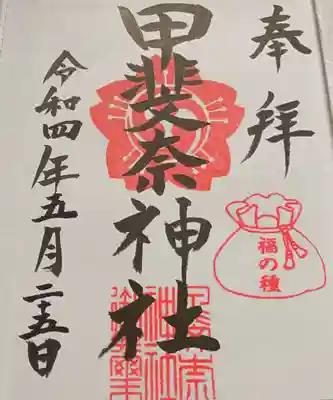 奉拝
福の種
甲斐奈神社
令和四年五月二五日